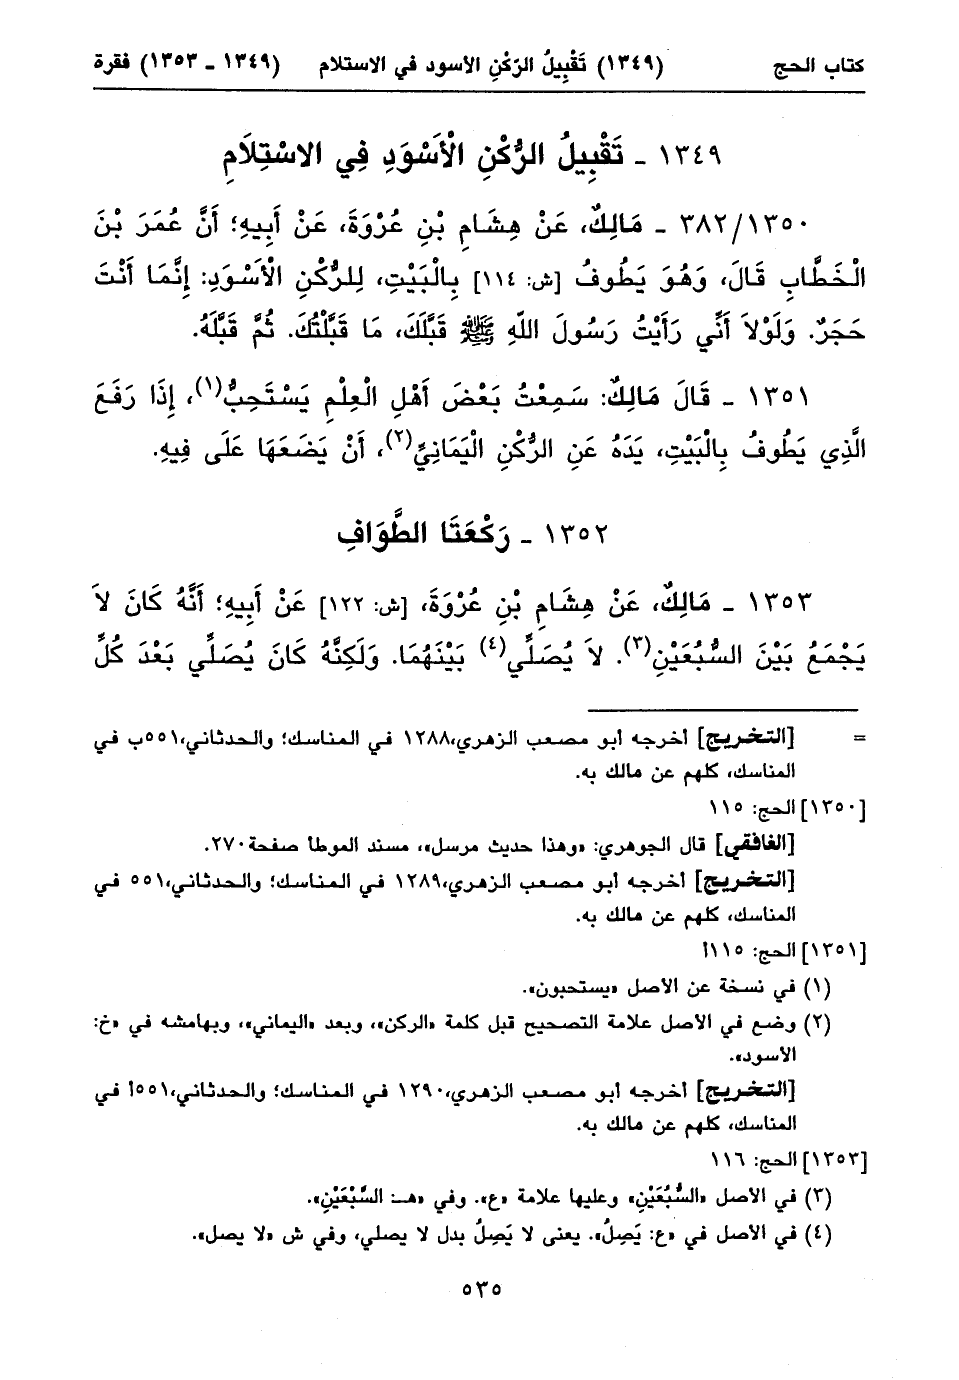 كتاب الحج (١٣٤٩) تَقْبِيلُ الرّكْنِ الأسود في الاستلام (١٣٤٩ - ١٣٥٣) فقرة
١٣٤٩ - تَقْبِيلُ الرُّكْنِ الْأَسْوَدِ فِي الاسْتِلَامِ
٣٨٢/١٣٥٠ - مَالِكٌ، عَنْ هِشَامِ بْنِ عُرْوَةَ، عَنْ أَبِيهِ؛ أَنَّ عُمَرَ بْنَ
الْخَطَّابِ قَالَ، وَهُوَ يَطُوفُ [ش: ١١٤] بِالْبَيْتِ، لِلرُّكْنِ الْأَسْوَدِ: إِنَّمَا أَنْتَ
حَجَرٌ. وَلَوْلاَ أَنِّي رَأَيْتُ رَسُولَ اللهِ ﷺ قَبَّلَكَ، مَا قَبَّلْتُكَ. ثُمَّ قَبَّلَهُ.
١٣٥١ - قَالَ مَالِكٌ: سَمِعْتُ بَعْضَ أَهْلِ الْعِلْمِ يَسْتَحِبُّ(١)، إِذَا رَفَعَ
الَّذِي يَطُوفُ بِالْبَيْتِ، يَدَهُ عَنِ الرُّكْنِ الْيَمَانِيِّ(٢)، أَنْ يَضَعَهَا عَلَى فِيهِ.
١٣٥٢ - رَكْعَتَا الطَّوَافِ
١٣٥٣ - مَالِكٌ، عَنْ هِشَامِ بْنِ عُرْوَةَ، [ش: ١٢٢] عَنْ أَبِيهِ؛ أَنَّهُ كَانَ لاَ
يَجْمَعُ بَيْنَ السُّبُعَيْنِ(٣). لاَ يُصَلِّي(٤) بَيْنَهُمَا. وَلَكِنَّهُ كَانَ يُصَلِّي بَعْدَ كُلِّ
= [التخريج] أخرجه أبو مصعب الزهري،١٢٨٨ في المناسك؛ والحدثاني،٥٥١ب في
المناسك، كلهم عن مالك به.
[١٣٥٠] الحج: ١١٥
[الغافقي] قال الجوهري: «وهذا حديث مرسل»، مسند الموطأ صفحة٢٧٠.
[التخريج] أخرجه أبو مصعب الزهري،١٢٨٩ في المناسك؛ والحدثاني،٥٥١ في
المناسك، كلهم عن مالك به.
[١٣٥١] الحج: ١١٥أ
(١) في نسخة عن الأصل «يستحبون».
(٢) وضع في الأصل علامة التصحيح قبل كلمة «الركن»، وبعد «اليماني»، وبهامشه في «خ:
الأسود».
[التخريج] أخرجه أبو مصعب الزهري،١٢٩٠ في المناسك؛ والحدثاني،٥٥١أ في
المناسك، كلهم عن مالك به.
[١٣٥٣] الحج: ١١٦
(٣) في الأصل «السُّبُعَيْنِ» وعليها علامة «ع». وفي «هـ: السَّبْعَيْنِ».
(٤) في الأصل في «ع: يَصِلُ». يعنى لا يَصِلُ بدل لا يصلي، وفي ش «لا يصل».
٥٣٥